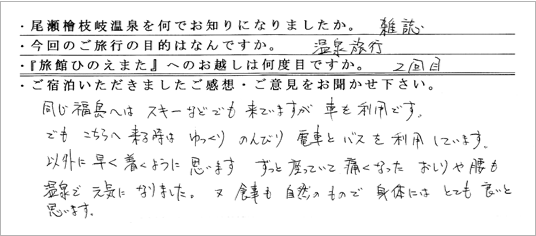 ・尾瀬檜枝岐温泉を何でお知りになりましたか。 雑誌
・今回のご旅行の目的はなんですか。 温泉旅行
・『旅館ひのえまた』へのお越しは何度目ですか。 2回目
・ご宿泊いただきましたご感想・ご意見をお聞かせ下さい。
同じ福島へは スキーなどでも 来ていますが 車を利用です。
でも こちらへ 来る時は ゆっくり のんびり 電車と バスを 利用 しています。
以外に 早く 着くように 思います ずっと 座っていて 痛くなった おしりや 腰も
温泉で 元気に なりました。 又 食事も 自然の もので 身体には とても 良いと
思います。